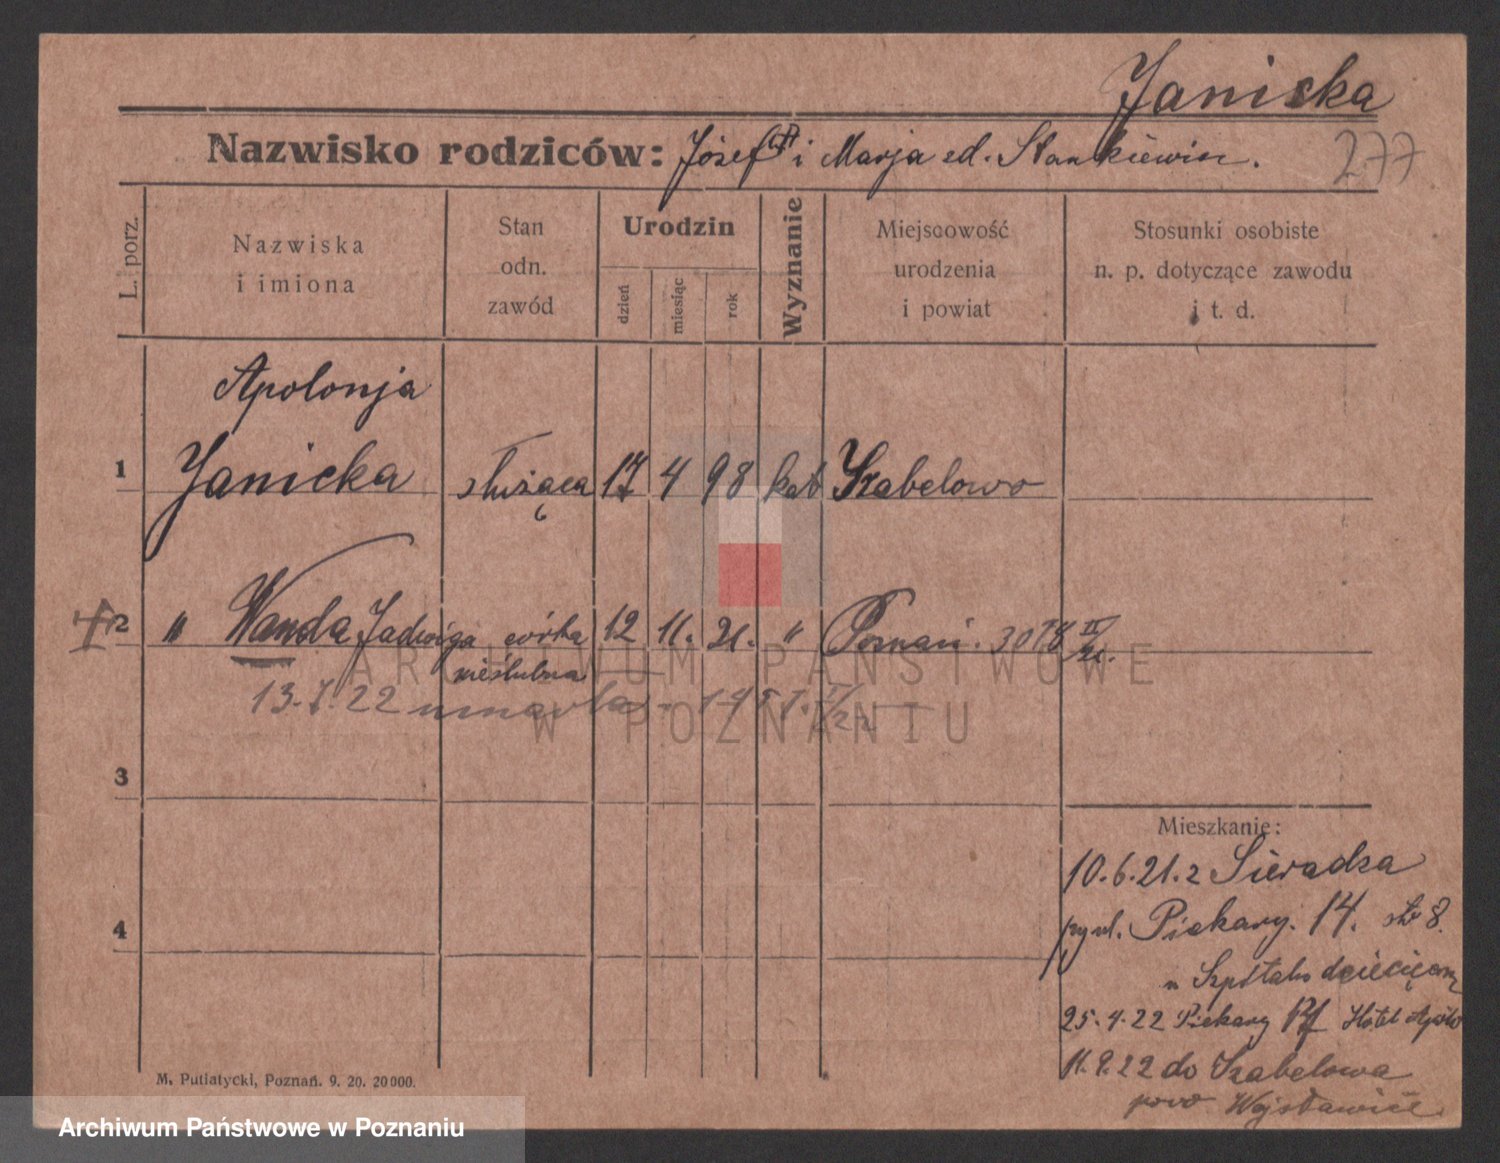 Janicka
Nazwisko rodziców: Józef (†) i Marja zd. Stankiewicz.
277
L. porz.
Nazwiska
i imiona
Stan
odn.
zawód
Urodzin
dzień
miesiąc
rok
Wyznanie
Miejscowość
urodzenia
i powiat
Stosunki osobiste
n. p. dotyczące zawodu
i t. d.
Apolonja
1 Janicka służąca 17 4 98 kat Szabelowo
† 2 " Wanda Jadwiga córka 12 11. 21. " Poznań. 3078
nieślubna
13.1.22 umarła
3
4
Mieszkanie:
10.6.21. z Sieradza
przy ul. Piekary. 14. 8.
Szpitalu dziecięcym
25.4.22 Piekary Hotel Apolo
11.9.22 do Szabelowa
pow
M. Putiatycki, Poznań. 9. 20. 20000.
ARCHIWUM PAŃSTWOWE
W POZNANIU
Archiwum Państwowe w Poznaniu